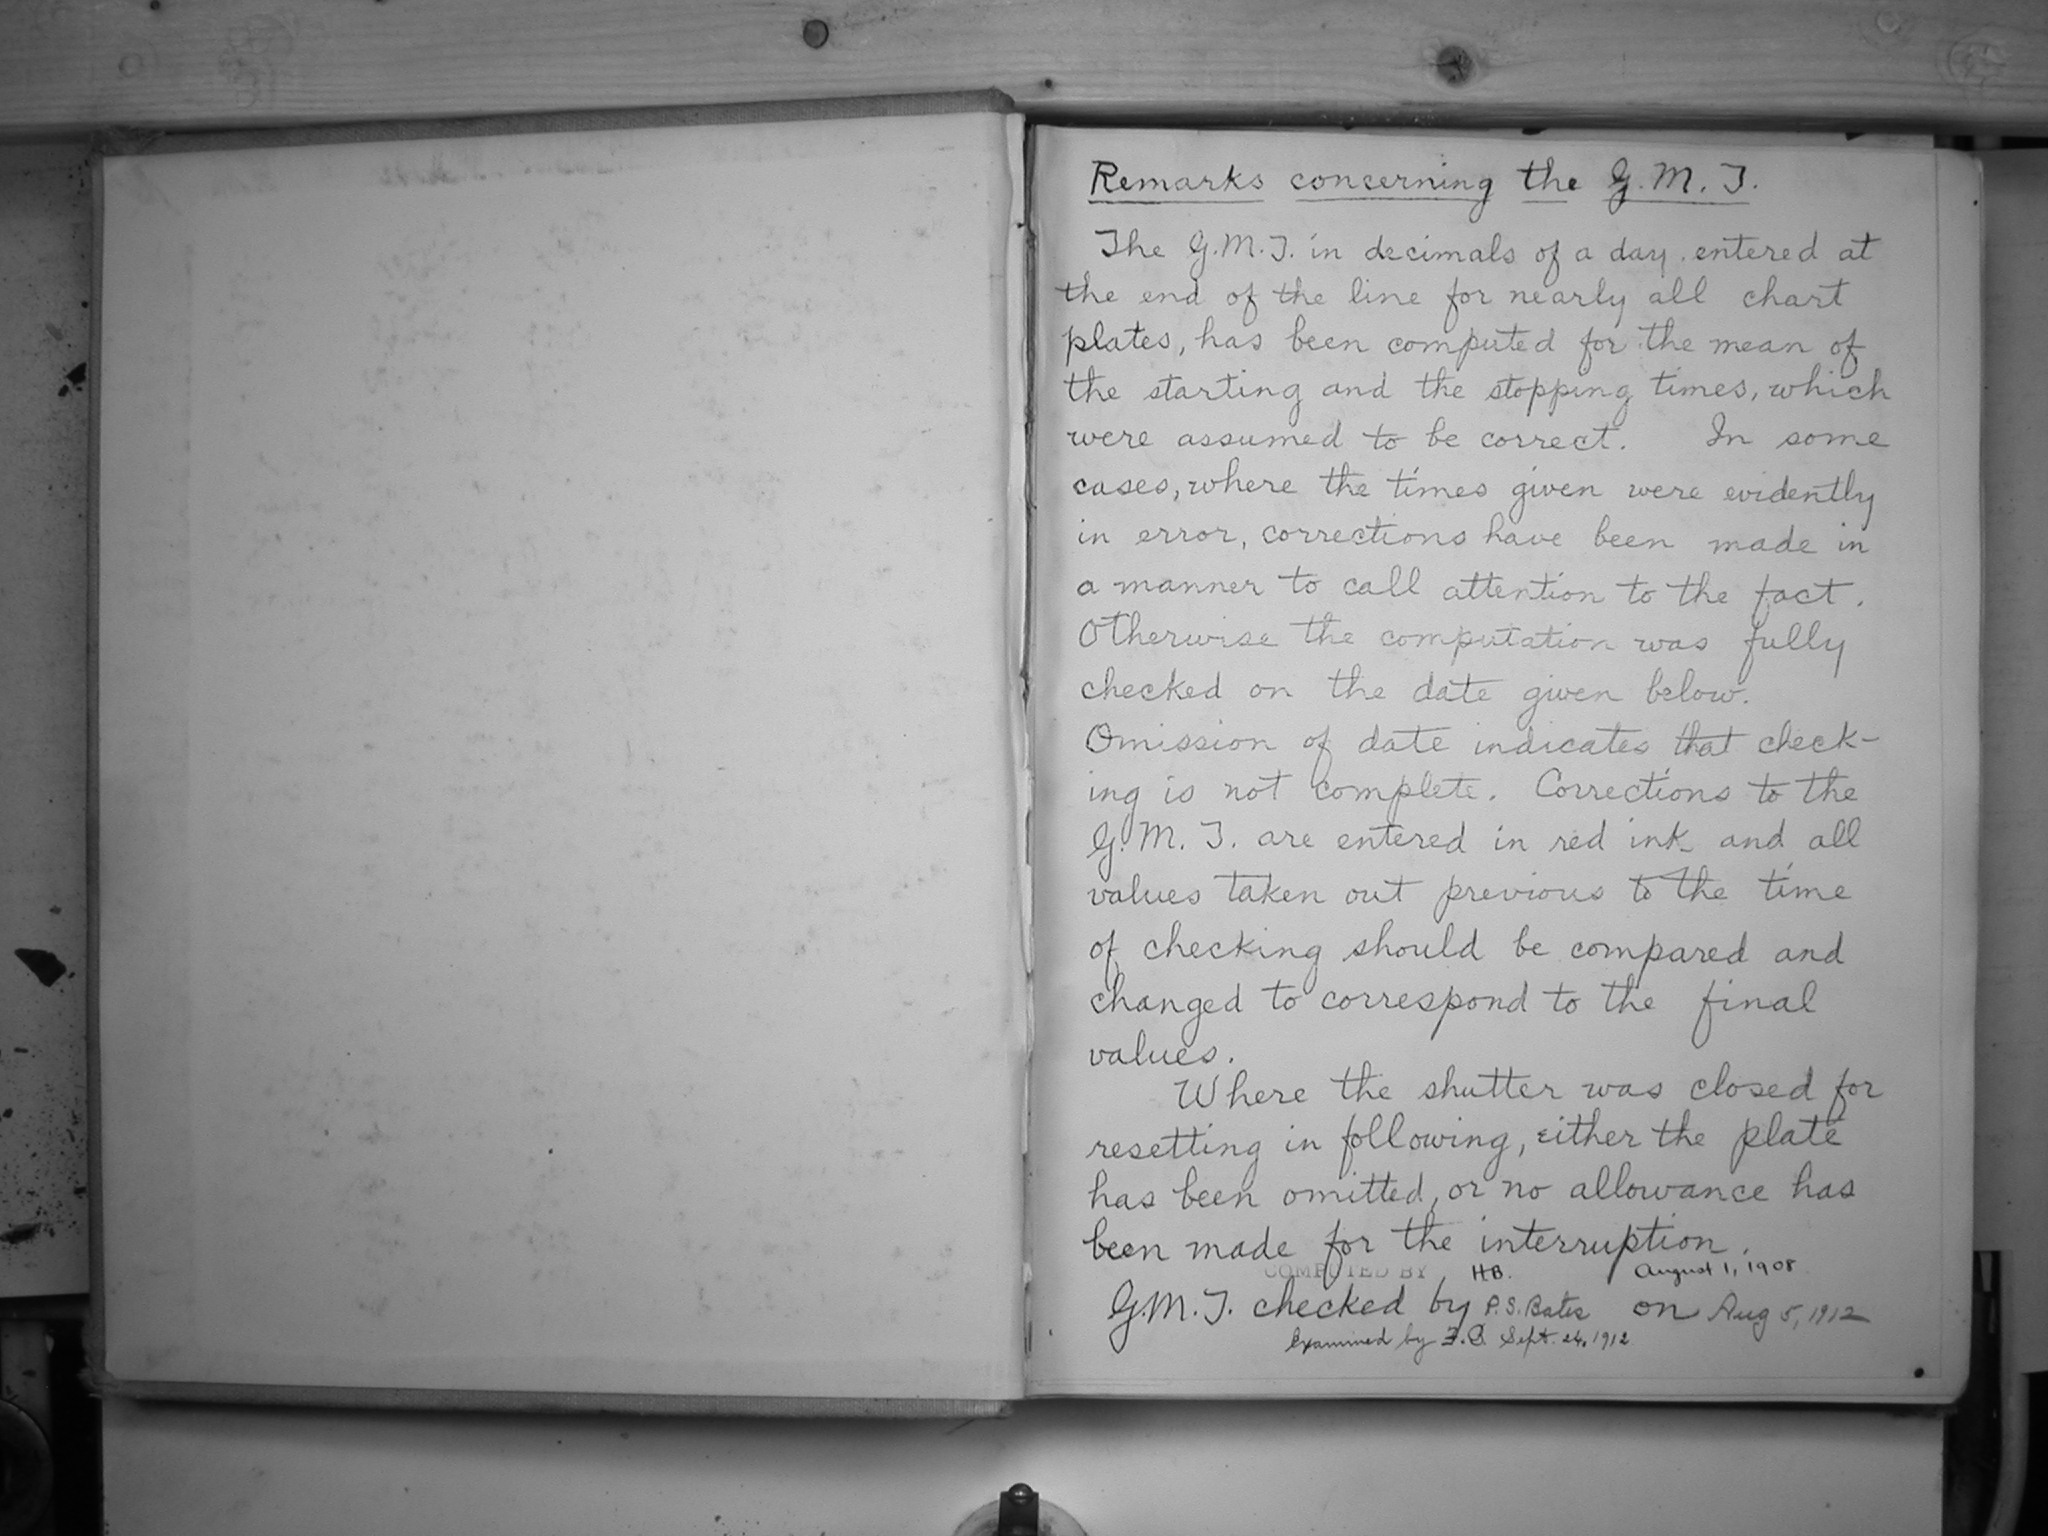 Remarks concerning the G.M.T.
The G.M.T. in decimals of a day, entered at
the end of the line for nearly all chart
plates, has been computed for the mean of
the starting and the stopping times, which
were assumed to be correct. In some
cases, where the times given were evidently
in error, corrections have been made in
a manner to call attention to the fact.
Otherwise the computation was fully
checked on the date given below.
Omission of date indicates that check-
ing is not complete. Corrections to the
G.M.T. are entered in red ink and all
values taken out previous to the time
of checking should be compared and
changed to correspond to the final
values.
Where the shutter was closed for
resetting in following, either the plate
has been omitted, or no allowance has
been made for the interruption.
COMPUTED BY HB. August 1, 1908
G.M.T. checked by P.S. Bates on Aug 5, 1912
Examined by Sept. 24, 1912